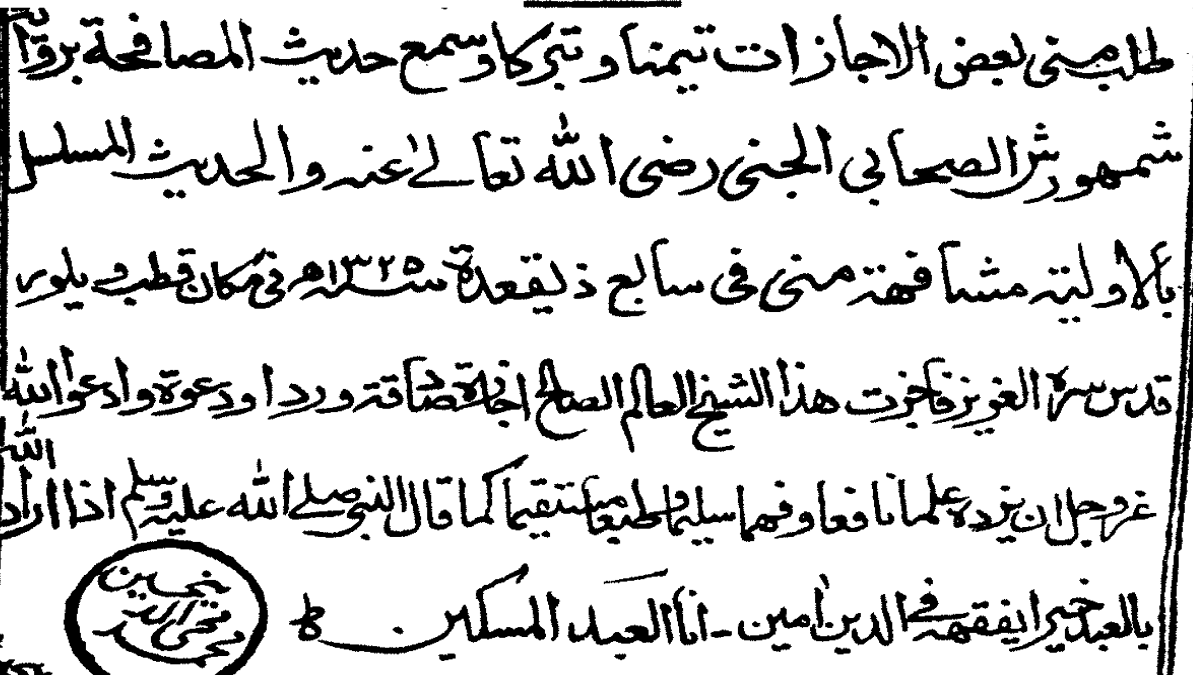 طلب منى بعض الاجازات تيمنا و تبركا وسمع حديث المصافحة برواية
شمهورش الصحابي الجنى رضى الله تعالىٰ عنه والحديث المسلسل
بالاولية مشافهة منى فى سابع ذيقعدة سنه ١٣٢٥ه فى مكان قطب ويلور
قدس سره العزيز فاجزت هذا الشيخ العالم الصالح اجازة صادقة وردا ودعوة وادعوا الله
عز وجل ان يزده علما نافعا وفهما سليما وطبعا مستقيما كما قال النبى صلے الله عليه وسلم اذا اراد الله
بالعبد خيرا يفقهه فى الدين اٰمين ـ انا العبد المسكين
محى الدين